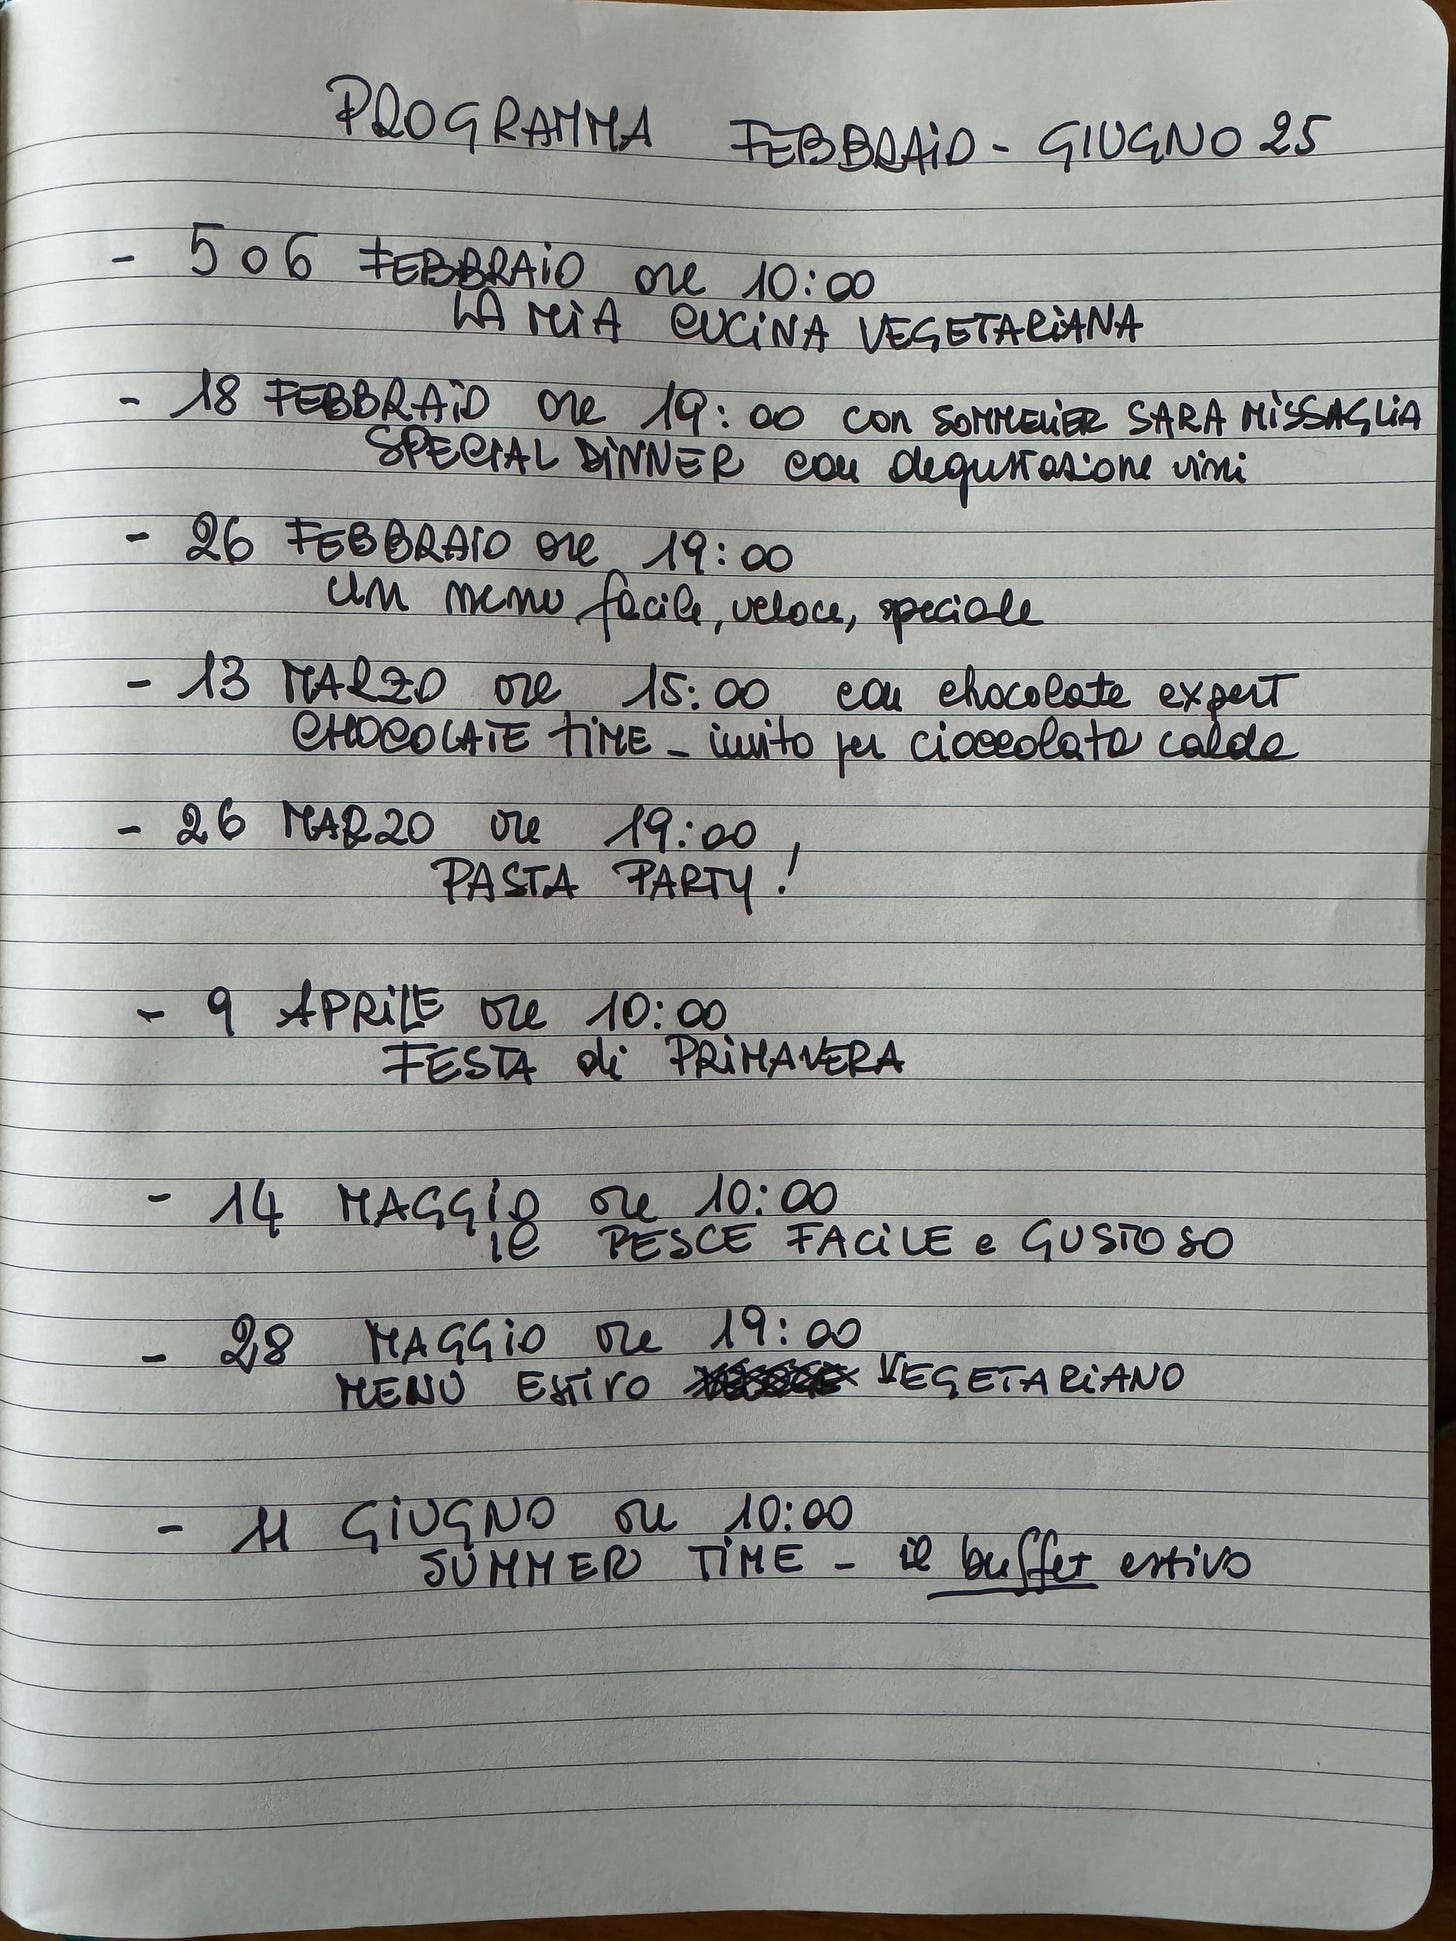 PROGRAMMA FEBBRAIO - GIUGNO 25
- 5 o 6 FEBBRAIO ore 10:00
LA MIA CUCINA VEGETARIANA
- 18 FEBBRAIO ore 19:00 con SOMMELIER SARA MISSAGLIA
SPECIAL DINNER con degustazione vini
- 26 FEBBRAIO ore 19:00
un menu facile, veloce, speciale
- 13 MARZO ore 15:00 con chocolate expert
CHOCOLATE TIME - invito per cioccolata calda
- 26 MARZO ore 19:00
PASTA PARTY!
- 9 APRILE ore 10:00
FESTA di PRIMAVERA
- 14 MAGGIO ore 10:00
il PESCE FACILE e GUSTOSO
- 28 MAGGIO ore 19:00
MENU ESTIVO VEGETARIANO
- 11 GIUGNO ore 10:00
SUMMER TIME - il buffet estivo